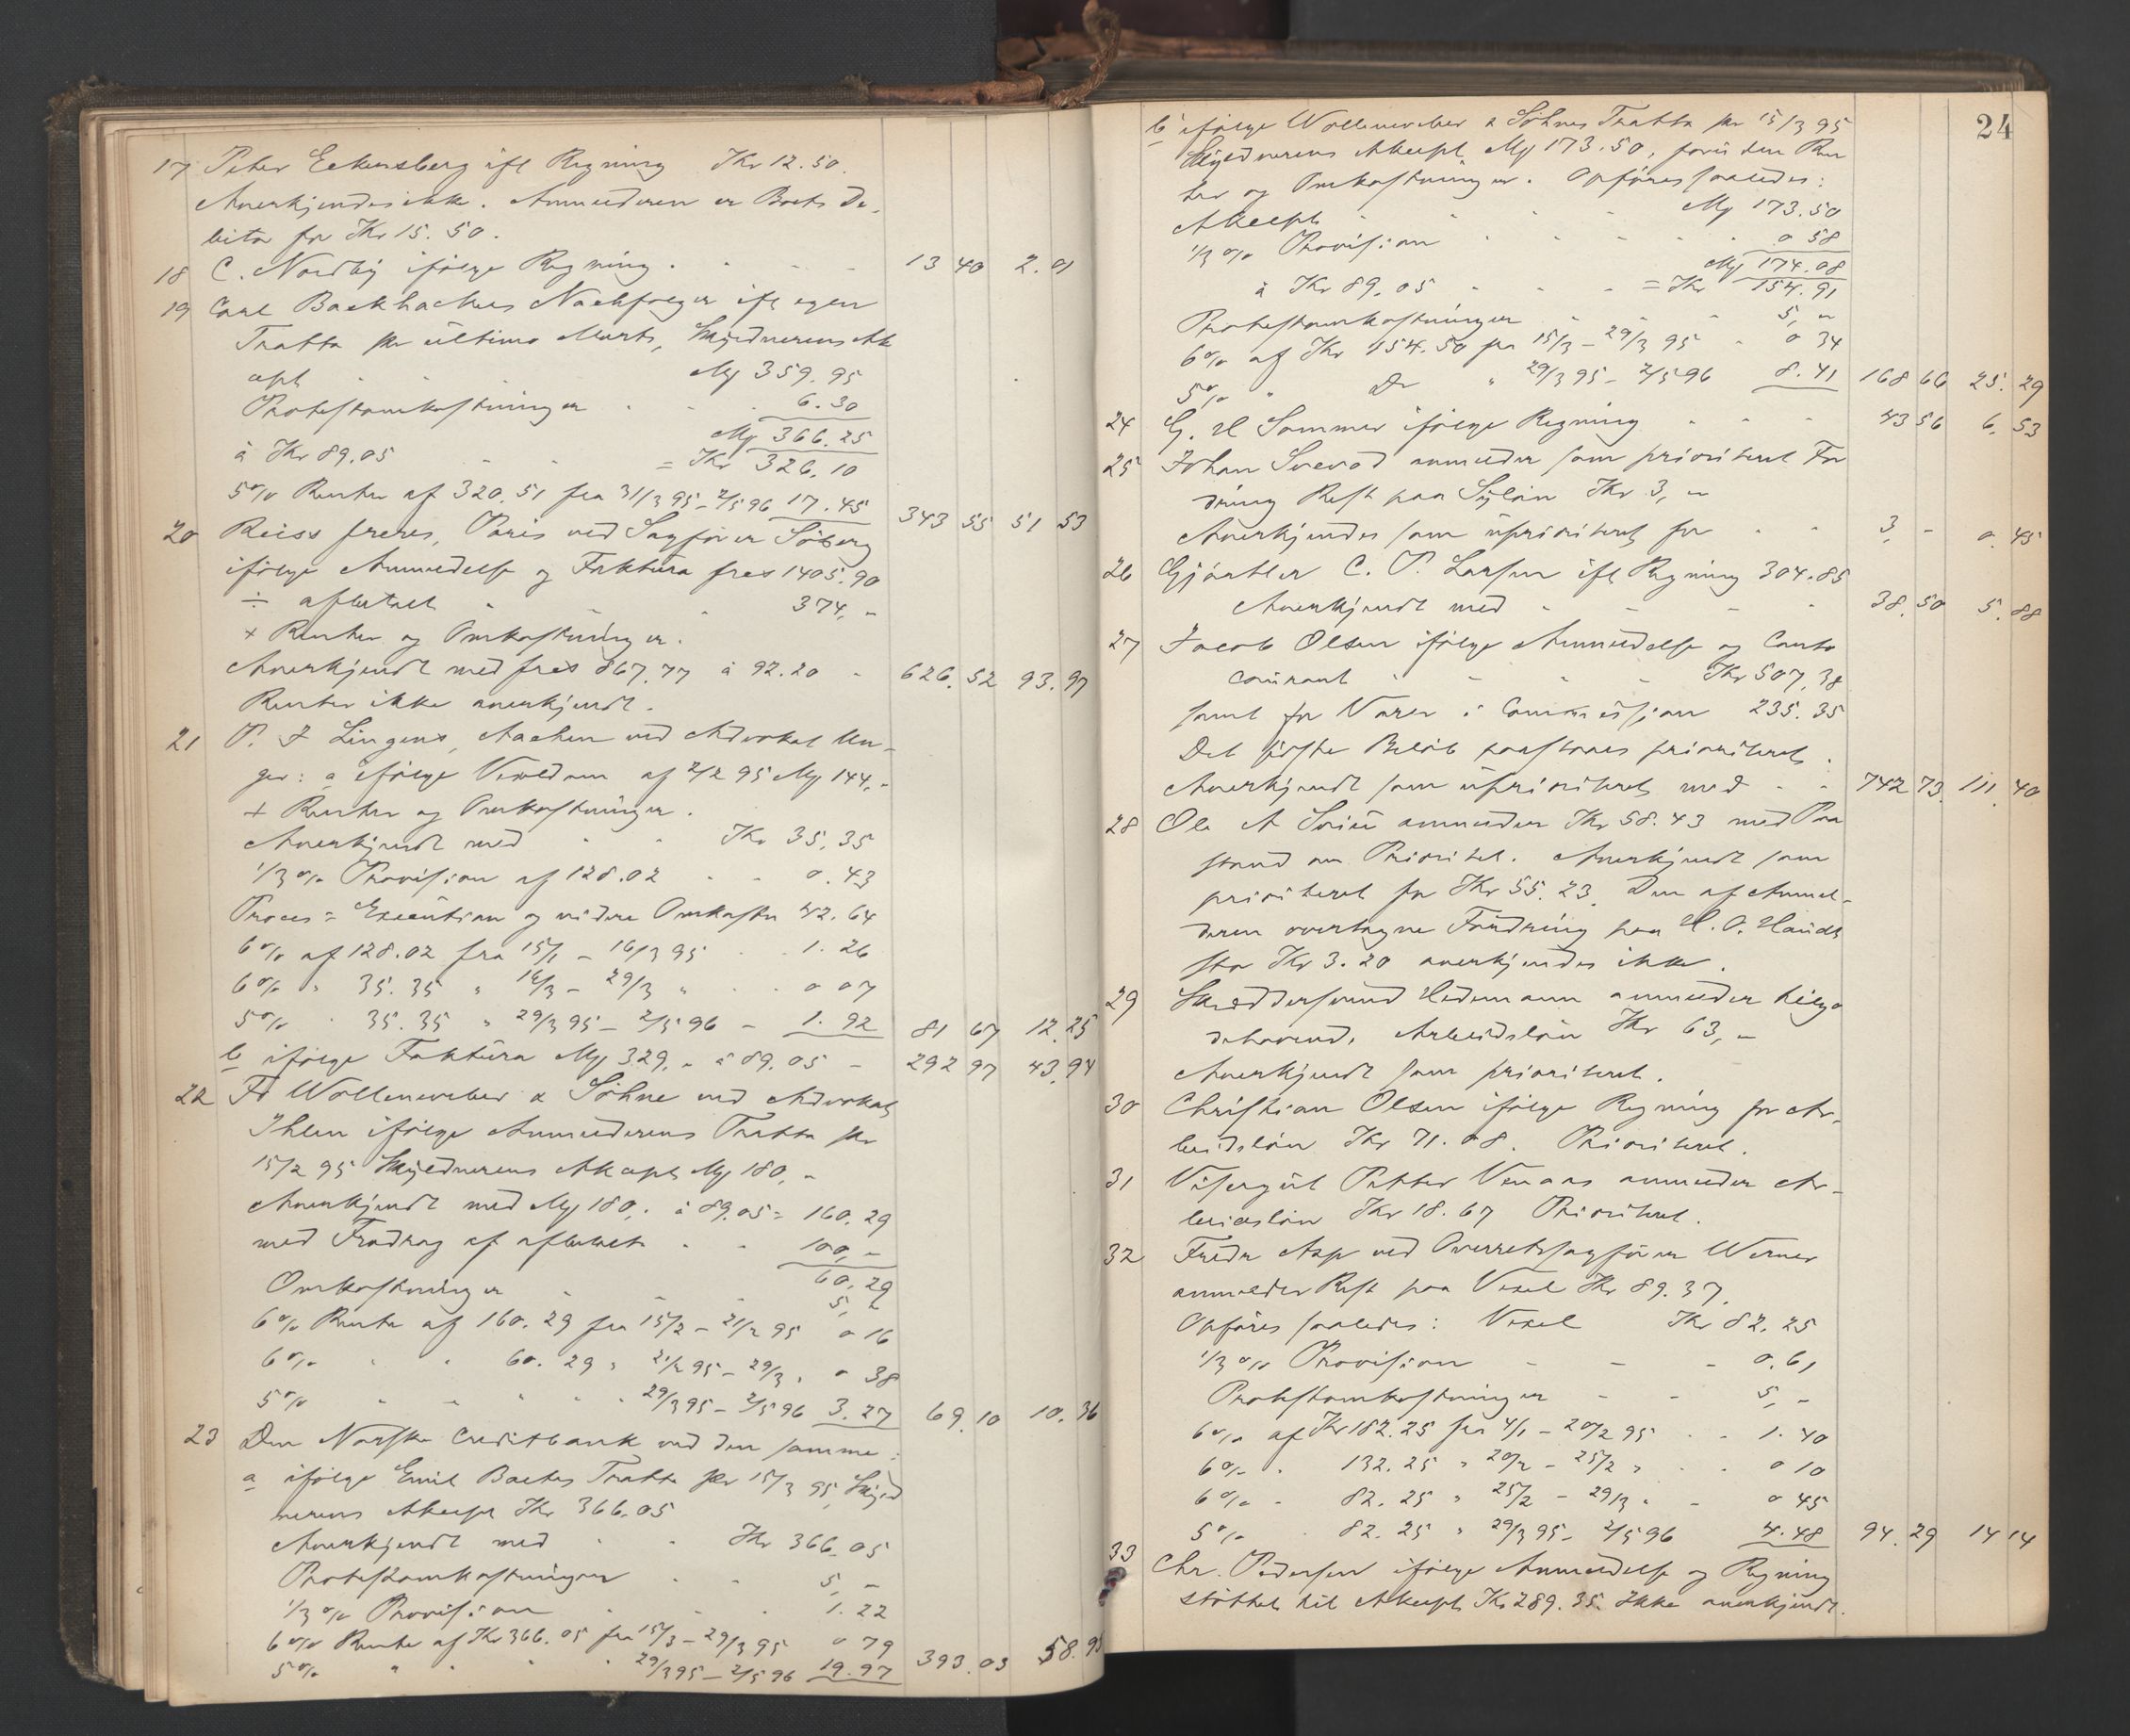 17 Peter Eckersberg ifl Regning Kr 12.50.
Anerkjendes ikke. Anmelderen er Boets De-
bitor for Kr 15.50.
18 C. Nordby ifølge Regning. 13 40 2.01
19 Carl Backhackers Nachfolger ifl egen
Tratta pr ültimo Marts, Skyldnerens Ak
cept Mk 359.95
Protestomkostninger 6.30
Mk 366.25
à Kr 89.05 = Kr 326.10
5% Renter af 320.51 fra 31/3 95 – 2/5 96 17.45 343 55 51 53
20 Reiss freres, Paris ved Sagfører Söberg
ifølge Anmeldelse og Faktüra frcs 1405.90
÷ afbetalt 374,-
+ Renter og Omkostninger.
Anerkjendt med frcs 867.77 à 92.20 626.52 93.97
Renter ikke anerkjendt.
21 P. J Lingens, Aachen ved Advokat Un-
ger: a ifølge Vexeldom af 2/2 95 Mk 144,-
+ Renter og Omkostninger.
Anerkjendt med Kr 35.35
1/3 % Provision af 128.02 0.43
Proces= Execütion og videre Omkostn 42.64
6% af 128.02 fra 15/1 – 16/3 95 1.26
6% " 35.35 " 16/3 – 29/3 " 0 07
5% " 35.35 " 29/3 95 – 2/5 96 – 1.92 81 67 12.25
b ifølge Faktüra Mk 329,- à 89.05 – 292 97 43.94
22 Fr Wollenweber & Söhne ved Advokat
Ihlen ifølge Anmelderens Tratta pr
15/2 95 Skyldnerens Akcept Mk 180,-
Anerkjendt med Mk 180,- à 89.05 = 160.29
med Fradrag af afbetalt 100,-
60.29
Omkostninger 5,-
6% Rente af 160.29 fra 15/2 – 21/2 95 0 16
6% " " 60.29 " 21/2 95 – 29/3 " 0 38
5% " " " " 29/3 95 – 2/5 96 3.27 69.10 10.36
23 Den Norske Creditbank ved den samme:
a ifølge Emil Baetes Tratta pr 15/3 95, Skyld
nerens Akcept Kr 366.05
Anerkjendt med Kr 366.05
Protestomkostninger 5,-
1/3 % Provision 1.22
6% Rente af Kr 366.05 fra 15/3 – 29/3 95 0 79
5% " " " 29/3 95 – 2/5 96 19.97 393.03 58.95
24
b ifølge Wollenweber & Söhnes Tratta pr 15/3 95
Skyldnerens Akcept Mk 173.50, foruden Ren
ter og Omkostninger. Opføres saaledes:
Akcept Mk 173.50
1/3 % Provision 0 58
Mk 174.08
à Kr 89.05 = Kr 154.91
Protestomkostninger 5,-
6% af Kr 154.50 fra 15/3 – 29/3 95 0 34
5% " Do " 29/3 95 – 2/5 96 8.41 168 66 25.29
24 G. H Sommer ifølge Regning 43 56 6.53
25 Johan Svevad anmelder som prioriteret For
dring Rest paa Sylön Kr 3,-
Anerkjendes som üprioriteret for 3 - 0.45
26 Gjörtler C. P. Larsen ifl Regning 304.85
Anerkjendt med 38.50 5.88
27 Jacob Olsen ifølge Anmeldelse og Conto
coürant Kr 507.38
samt for Varer i Commission 235.35
Det sidste Beløb paastaaes prioriteret.
Anerkjendt som üprioriteret med 742 73 111.40
28 Ole A anmelder Kr 58.43 med Paa
stand om Prioritet. Anerkjendt som
prioriteret for Kr 55.23. Den af Anmel-
deren overtagne Fordring paa H. O.
Kr 3.20 anerkjendes ikke.
29 Skræddersvend Hedemann anmelder tilgo
dehavend. Arbeidslön Kr 63,-
Anerkjendt som prioriteret.
30 Christian Olsen ifølge Regning for Ar-
beidslön Kr 71.08. Prioriteret.
31 Visergüt Petter Venaas anmelder Ar-
beidslön Kr 18.67 Prioriteret.
32 Fredr Asp ved Overretssagfører Werner
anmelder Rest paa Vexel Kr 89.37.
Opføres saaledes: Vexel Kr 82.25
1/3 % Provision 0.61
Protestomkostninger 5,-
6% af Kr 182.25 fra 4/1 – 20/2 95 1.40
6% " 132.25 " 20/2 – 25/2 " 0 10
6% " 82.25 " 25/2 – 29/3 " 0 45
5% " 82.25 " 29/3 95 – 2/5 96 4.48 94.29 14 14
33 Chr. Pedersen ifølge Anmeldelse og Regning
støttet til Akcept Kr 289.35. Ikke anerkjendt.